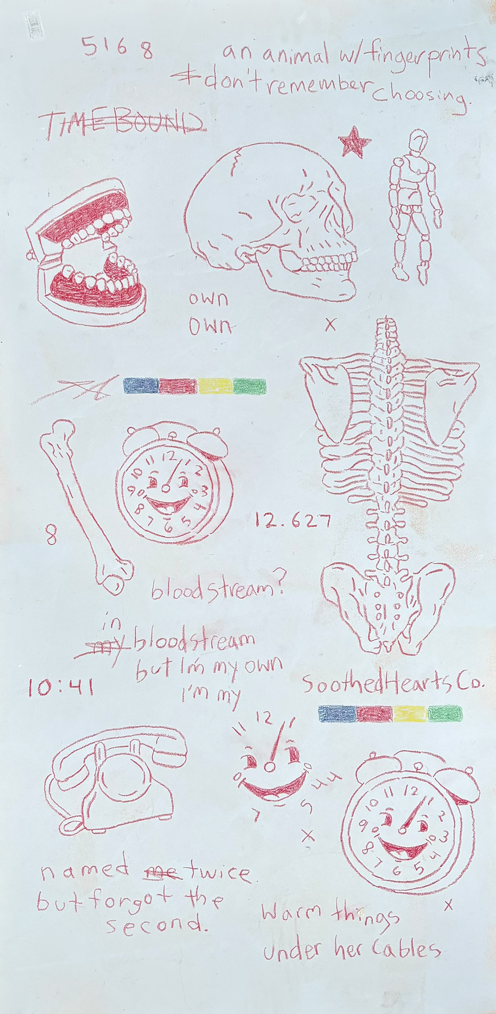 5168
an animal w/fingerprints
≠don't remember choosing.
TIMEBOUND
own
own
x
12
1
2
3
4
5
6
7
8
9
10
11
8
12.627
bloodstream?
in
my bloodstream
but I'm my own
I'm my
10:41
SoothedHeartsCo.
12
44
5
7
x
12
1
2
3
4
5
6
7
8
9
10
11
named me twice.
but forgot the
second.
x
Warm things
under her cables